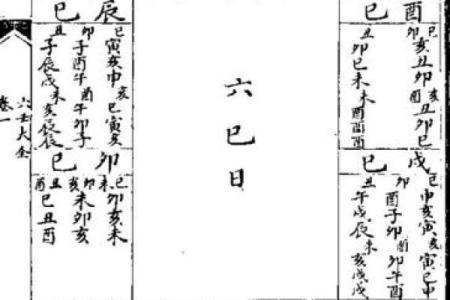 酉
巳
巳亥丑卯亥丑卯巳
丑卯巳未未酉酉酉
戌
巳
巳申亥寅亥寅巳申
卯酉子卯酉卯午酉
丑午戌辰未亥戌戌
六巳日
辰
巳
巳寅亥申亥巳寅亥
卯子酉午酉午卯子
丑子辰戌未亥辰辰
卯
巳
巳亥未
未卯
卯未卯亥
丑亥
酉巳丑酉
六壬大全
卷一